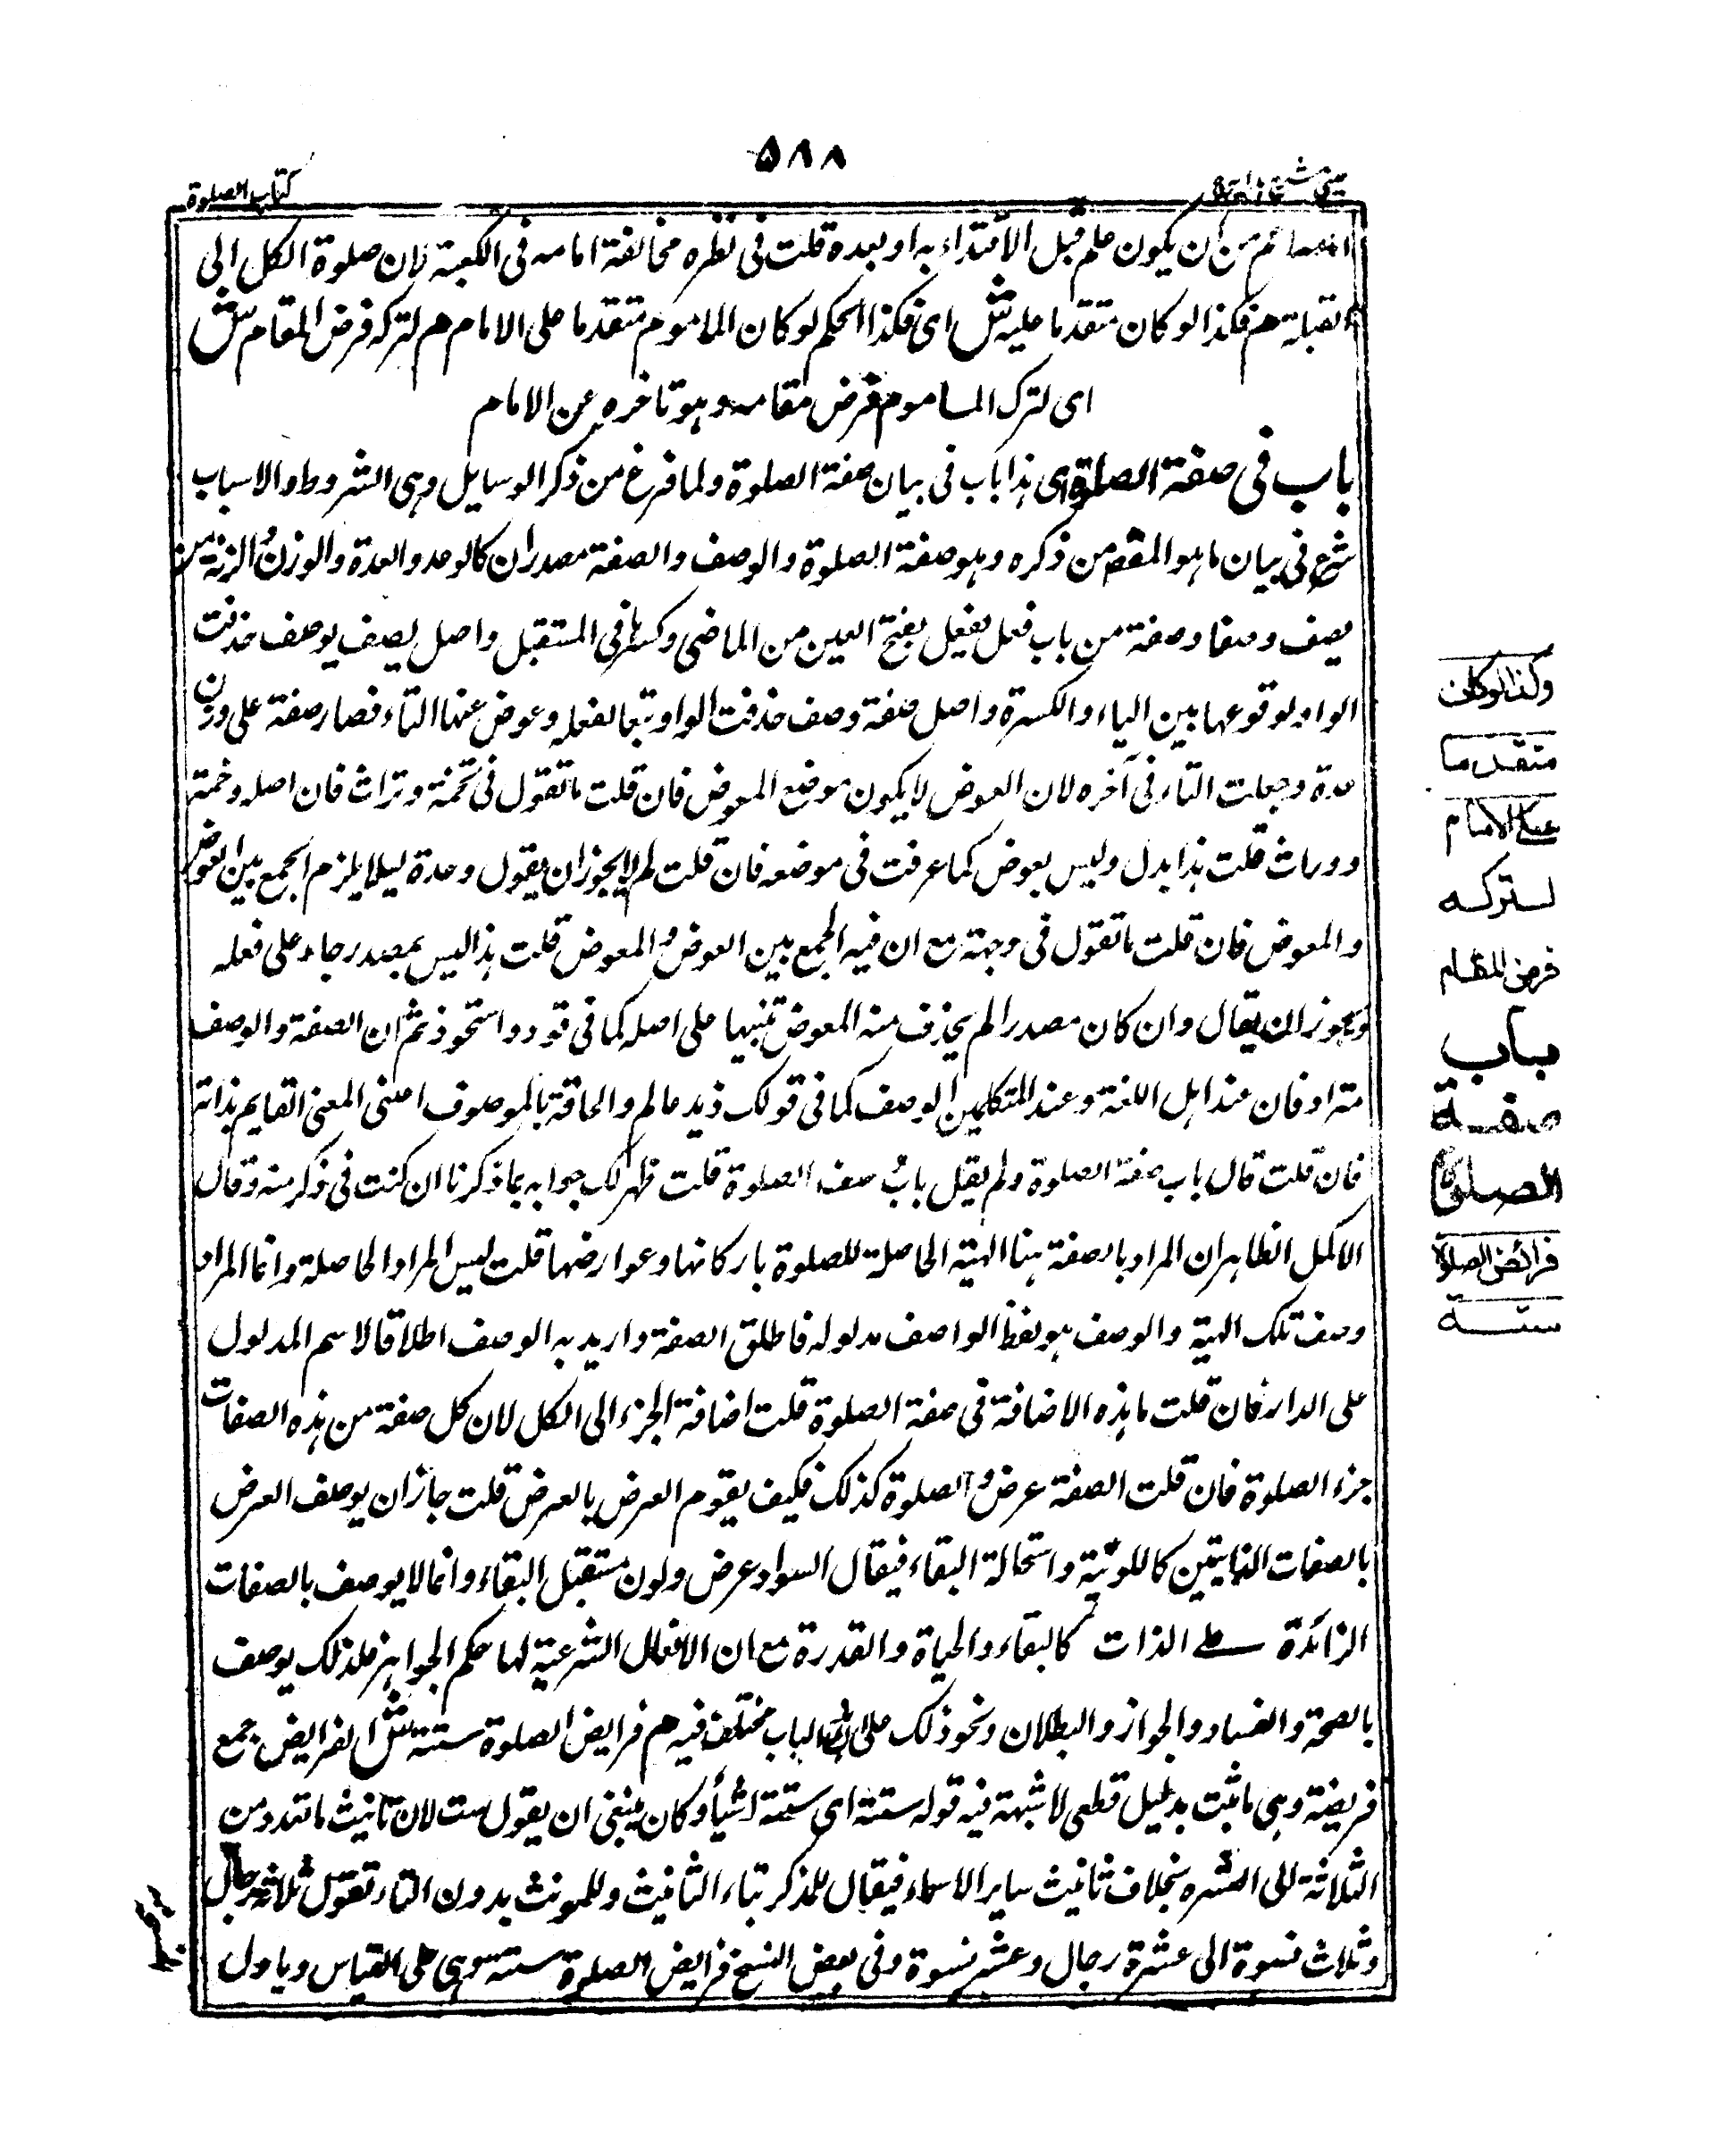 ۵۸۸
كتاب الصلوة
من ان يكون علم قبل الاقتداء به او بعده قلت فى نظره مخالفة امامه فى الكعبة لان صلوة الكل الى
القبلة هم فكذا لو كان متقدما عليه ش اى فكذا الحكم لو كان الماموم متقدما على الامام هم لتركه فرض المقام ش
اى لترك الماموم فرض مقامه وهو تاخره عن الامام
باب فى صفة الصلوة اى هذا باب فى بيان صفة الصلوة ولما فرغ من ذكر الوسايل وهى الشروط والاسباب
شرع فى بيان ما هو المقصم من ذكره وهو صفة الصلوة والوصف والصفة مصدران كالوعد والعدة والوزن والزنة من
يصف وصفا وصفة من باب فعل يفعل بفتح العين من الماضى وكسرها فى المستقبل واصل يصف يوصف حذفت
الواو لوقوعها بين الياء والكسرة واصل صفة وصف حذفت الواو تبعا لفعله وعوض عنها التاء فصار صفة على وزن
عدة وجعلت التاء فى آخره لان العوض لا يكون موضع المعوض فان قلت ما تقول فى تخمة وتراث فان اصله وخمة
ووراث قلت هذا بدل وليس بعوض كما عرفت فى موضعه فان قلت لم لا يجوز ان يقول وعدة ليلا يلزم الجمع بين العوض
والمعوض فان قلت ما تقول فى وجهة مع ان فيه الجمع بين العوض والمعوض قلت هذا ليس بمصدر جاء على فعله
ويجوز ان يقال وان كان مصدرا لم يحذف منه المعوض تنبيها على اصله كما فى قود واستحوذ ثم ان الصفة والوصف
مترادفان عند اهل اللغة وعند المتكلمين الوصف كما فى قولك زيد عالم والحاقة بالموصوف اعنى المعنى القايم بذاته
فان قلت قال باب صفة الصلوة ولم يقل باب وصف الصلوة قلت ظهر لك جوابه بما ذكرنا ان كنت فى ذكر منه وقال
الاكمل الظاهر ان المراد بالصفة هنا الهيئة الحاصلة للصلوة باركانها وعوارضها قلت ليس المراد الحاصلة وانما المراد
وصف تلك الهيئة والوصف هو لفظ الواصف مدلوله فاطلق الصفة واريد به الوصف اطلاقا لاسم المدلول
على الدار فان قلت ما هذه الاضافة فى صفة الصلوة قلت اضافة الجزء الى الكل لان كل صفة من هذه الصفات
جزء الصلوة فان قلت الصفة عرض والصلوة كذلك فكيف يقوم العرض بالعرض قلت جاز ان يوصف العرض
بالصفات الذاتيتين كاللونية واستحالة البقاء فيقال السواد عرض ولون مستقبل البقاء وانما لا يوصف بالصفات
الزائدة على الذات كالبقاء والحياة والقدرة مع ان الافعال الشرعية لها حكم الجواهر فلذلك يوصف
بالصحة والفساد والجواز والبطلان ونحو ذلك على ان الباب مختلف فيه هم فرايض الصلوة ستة ش الفرايض جمع
فريضة وهى ما ثبت بدليل قطعى لا شبهة فيه قوله ستة اى ستة اشياء وكان ينبغى ان يقول ست لان تانيث ما تعدد من
الثلاثة الى العشرة بخلاف تانيث ساير الاسماء فيقال للمذكر بتاء التانيث وللمونث بدون التاء تقول ثلاثة رجال
وثلاث نسوة الى عشرة رجال وعشر نسوة وفى بعض النسخ فرايض الصلوة ست وهى على القياس وياول
وكذا لو كان
متقدما
على الامام
لتركه
فرض المقام
باب
صفة
الصلوة
فرائض الصلوة
ستة